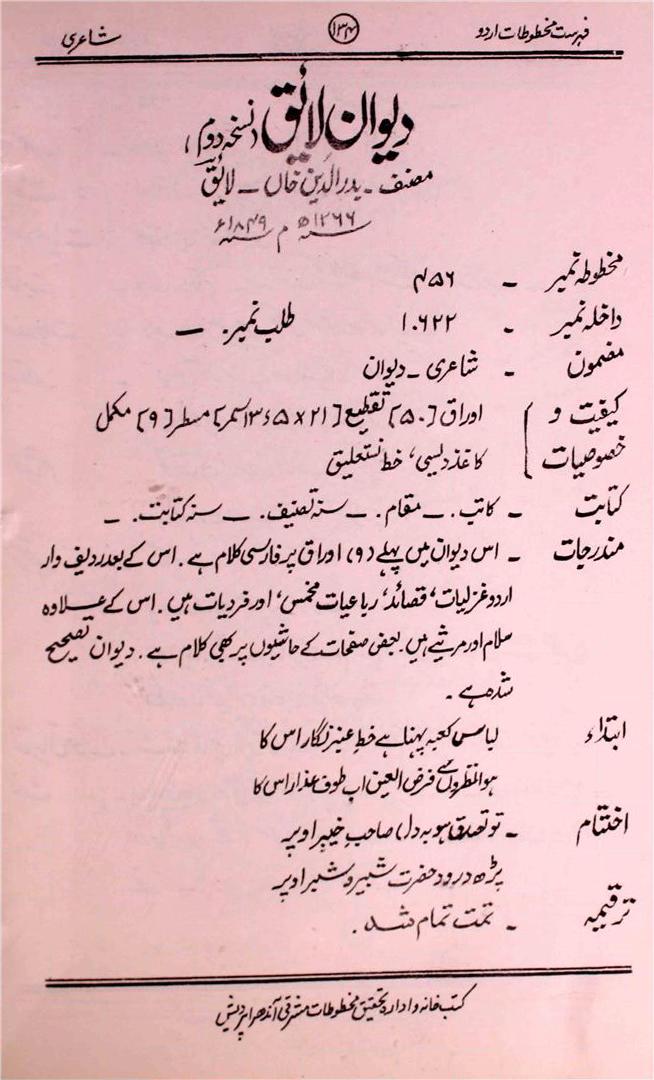 فہرست مخطوطات اردو ۱۳۴ شاعری
دیوان لائق (نسخہ دوم)
مصنف ۔ بدرالدین خاں ۔ لائق
سنہ ۱۲۶۶ھ م سنہ ۱۸۴۹ء
مخطوطہ نمبر ۔ ۴۵۶
داخلہ نمبر ۔ ۱۰۶۲۲ طلب نمبر ۔ —
مضمون ۔ شاعری ۔ دیوان
کیفیت و خصوصیات } اوراق [۵۰] تقطیع [۲۱ × ۱۳ء۵ سمر] مسطر [۹] مکمل
کاغذ دیسی، خط نستعلیق
کتابت ۔ کاتب ۔ — مقام ۔ — سنہ تصنیف ۔ — سنہ کتابت ۔ —
مندرجات ۔ اس دیوان میں پہلے (۹) اوراق پر فارسی کلام ہے ۔ اس کے بعد ردیف وار
اردو غزلیات، قصائد، رباعیات مخمس، اور فردیات ہیں ۔ اس کے علاوہ
سلام اور مرثیے ہیں ۔ بعض صفحات کے حاشیوں پر بھی کلام ہے ۔ دیوان تصحیح
شدہ ہے ۔
ابتداء لباس کعبہ پہنا ہے خطِ عنبر نگار اس کا
ہوا نظروں سے فرض العین اب طوف عذار اس کا
اختتام ۔ تو تصدق ہو بہ دل صاحبِ خیبر اوپر
پڑھ درود حضرت شبیر و شبر اوپر
ترقیمہ ۔ تمت تمام شد ۔
کتب خانہ و ادارہ تحقیق مخطوطات مشرقی آندھرا پردیش